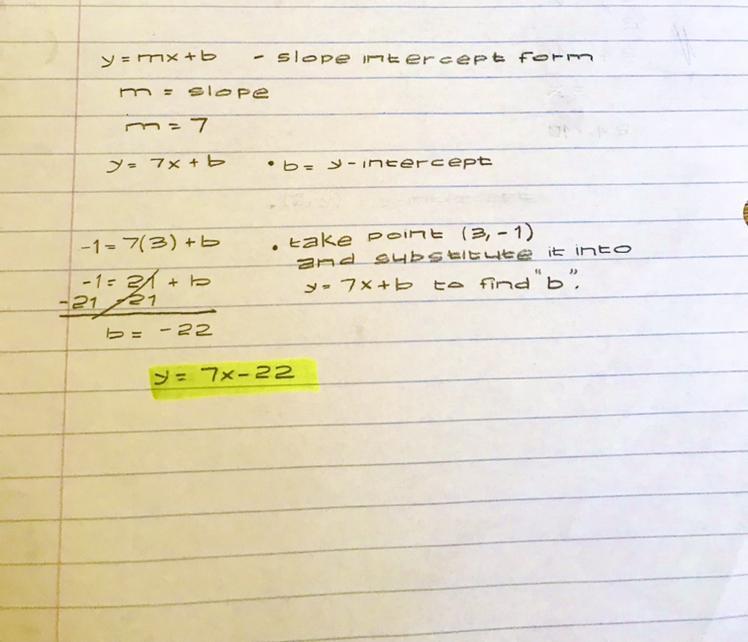 y = mx + b - slope intercept form
m = slope
m = 7
y = 7x + b • b = y-intercept
-1 = 7(3) + b • take point (3, -1)
and substitute it into
-1 = 21 + b y = 7x + b to find "b".
-21 -21
b = -22
y = 7x - 22